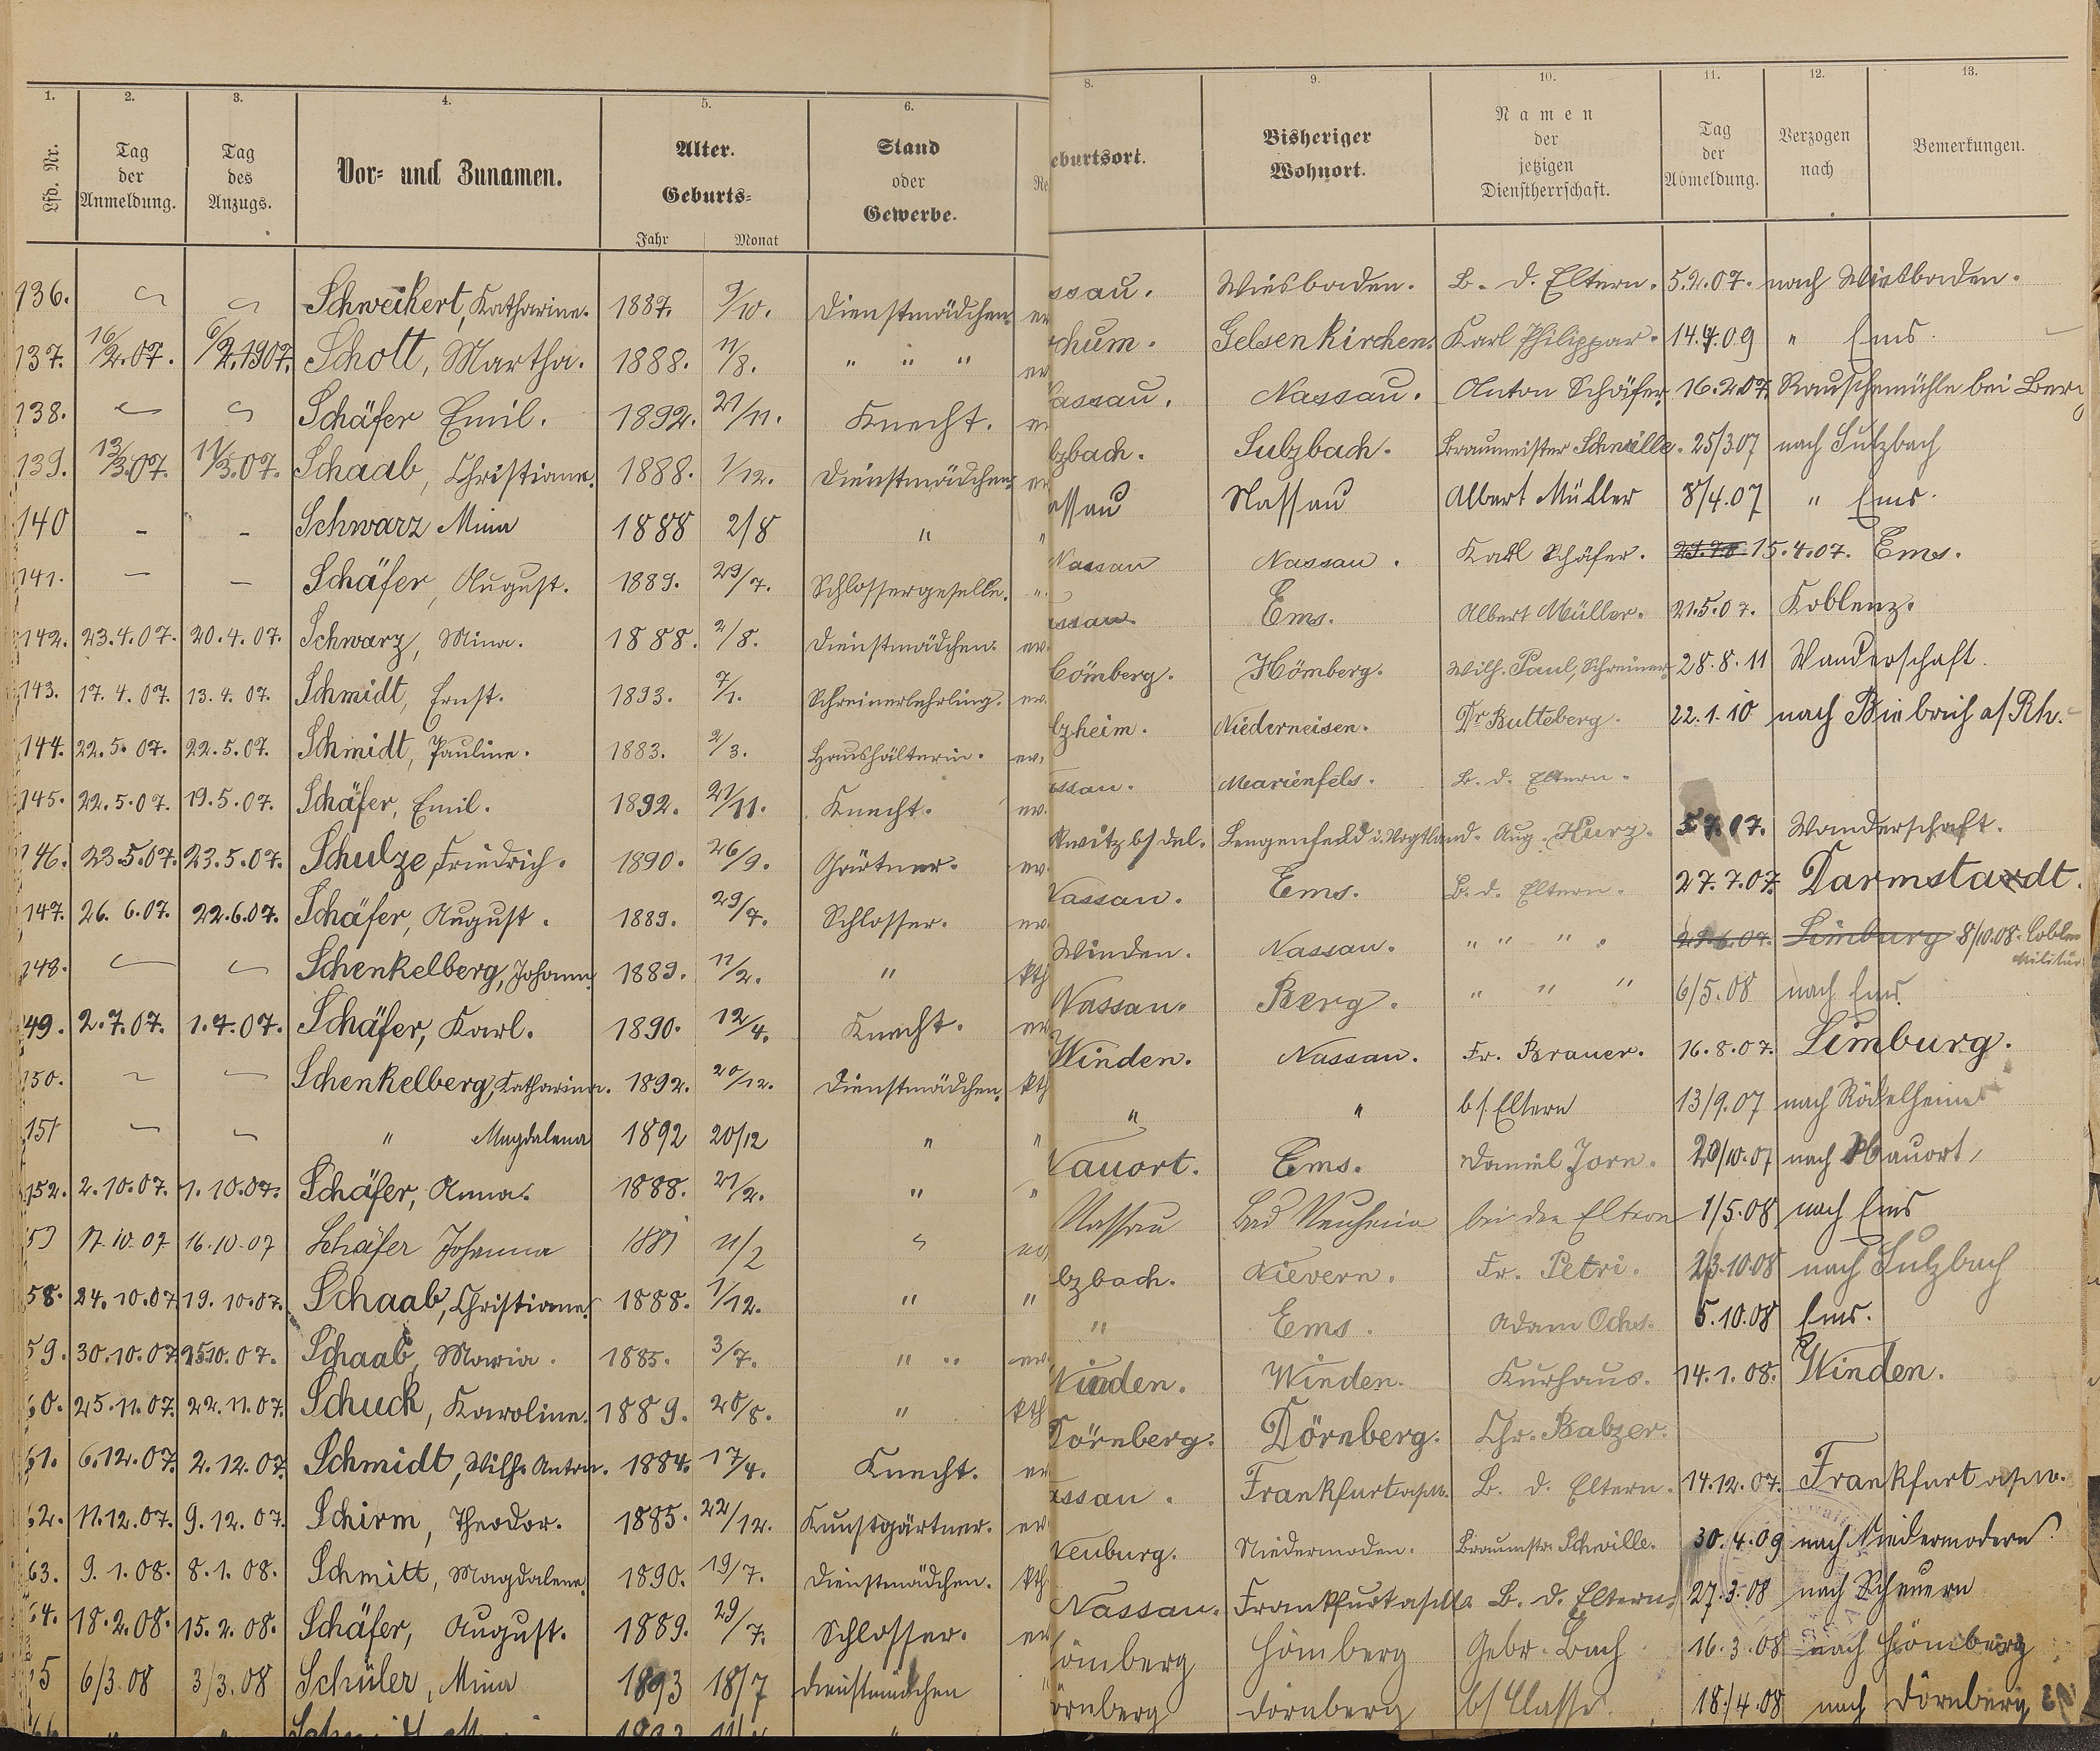 1. 2. 3. 4. 5. 6. 8. 9. 10. 11. 12. 13.
Lfd. Nr. Tag der Anmeldung. Tag des Anzugs. Vor- und Zunamen. Alter. Geburts- Jahr Monat Stand oder Gewerbe. Re eburtsort. Bisheriger Wohnort. Namen der jetzigen Dienstherrschaft. Tag der Abmeldung. Verzogen nach Bemerkungen.
136. Schweikert, Katharine. 1887. 9/10. Dienstmädchen. ev
137. 16/2.07. 6/2.1907. Schott, Martha. 1888. 11/8. " " " ev
138. Schäfer Emil. 1892. 21/11. Knecht. e
139. 13/3.07. 11/3.07. Schaab, Christiane. 1888. 1/12. Dienstmädchen. ev
140 - - Schwarz Mina 1888 2/8 " "
141. — — Schäfer, August. 1889. 29/7. Schlossergeselle. "
142. 23.4.07. 20.4.07. Schwarz, Mina. 1888. 2/8. Dienstmädchen. ev.
143. 17.4.07. 13.4.07. Schmidt, Ernst. 1893. 7/1. Schreinerlehrling. ev.
144. 22.5.07. 22.5.07. Schmidt, Pauline. 1883. 2/3. Haushälterin. ev.
145. 22.5.07. 19.5.07. Schäfer, Emil. 1892. 21/11. Knecht. ev.
146. 23.5.07. 23.5.07. Schulze, Friedrich. 1890. 26/9. Gärtner. ev.
147. 26.6.07. 22.6.07. Schäfer, August. 1889. 29/7. Schlosser. ev.
148. Schenkelberg, Johann. 1889. 11/2. " kth
49. 2.7.07. 1.7.07. Schäfer, Karl. 1890. 12/4. Knecht. ev
150. Schenkelberg, Katharina. 1892. 20/12. Dienstmädchen. kth
151 " Magdalena 1892 20/12 " "
152. 2.10.07. 1.10.07. Schäfer, Anna. 1888. 21/2. " "
53 17.10.07 16.10.07 Schäfer Johanna 11/2
58. 24.10.07 19.10.07. Schaab, Christiane. 1888. 1/12. " "
59. 30.10.07 25.10.07. Schaab, Maria. 1885. 3/7. " " ev.
60. 25.11.07. 22.11.07. Schuck, Karoline. 1889. 20/8. " kth
61. 6.12.07. 2.12.07. Schmidt, Wilh. Anton. 1884. 17/4. Knecht. ev
62. 11.12.07. 9.12.07. Schirm, Theodor. 1885. 22/12. Kunstgärtner. ev
63. 9.1.08. 8.1.08. Schmitt, Magdalene. 1890. 19/7. Dienstmädchen. kth
64. 18.2.08. 15.2.08. Schäfer, August. 1889. 29/7. Schlosser. ev
5 6/3.08 3/3.08 Schüler, Mina 1893 18/7 Dienstmädchen
ssau. Wiesbaden. B. d. Eltern. 5.2.07. nach Wiesbaden.
chum. Gelsenkirchen. Karl Philippar. 14.4.09 " Ems.
assau. Nassau. Anton Schäfer. 16.2.07. Rauschemühle bei Berg
lzbach. Sulzbach. Braumeister 25/3 07 nach Sulzbach
assau Nassau Albert Müller 8/4.07 " Ems.
Nassau Nassau. Karl Schäfer. 15.4.07. Ems.
assau. Ems. Albert Müller. 21.5.07. Koblenz.
Hömberg. Wilh. Paul, Schreiner. 28.8.11 Wanderschaft.
lzheim. Niederneisen. Dr Butteberg. 22.1.10 nach Biebrich a/Rh.
assau. Marienfels. B. d. Eltern.
kwitz b/ Lengenfeld i. Vogtland. Aug. Kurz. 5.7.07. Wanderschaft.
Nassau. Ems. B. d. Eltern. 27.7.07 Darmstadt.
Winden. Nassau. " " " . Limburg 8/10.08. Coblen Militär
Nassau. Berg. " " " 6/5.08 nach Ems.
Winden. Nassau. Fr. Brauer. 16.8.07. Limburg.
" " b/ Eltern 13/9.07 nach Rödelheim
Nauort. Ems. Daniel Jorn. 20/10.07 nach Nauort,
Nassau Bad Nauheim bei den Eltern 1/5.08 nach Ems
lzbach. Nievern. Fr. Petri. 23.10.08 nach Sulzbach
" Ems. Adam Ochs. 5.10.08 Ems.
Winden. Winden. Kurhaus. 14.1.08. Winden.
Dörnberg. Dörnberg. Chr. Balzer.
assau. Frankfurt a/M. B. d. Eltern. 14.12.07. Frankfurt a/M.
Neuburg. Niedermoden. Braumstr. Schwille. 30.4.09 nach Niedermodern
Nassau. Frankfurt a/M B. d. Eltern. 27.3.08 nach Scheuern
ömberg Hömberg Gebr. Bach 16.3.08 nach Hömberg
örnberg Dörnberg b/ 18/4.08 nach Dörnberg